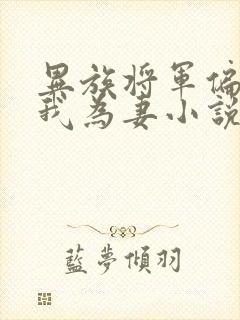 異族將軍偏
我為妻小說
藍夢傾羽